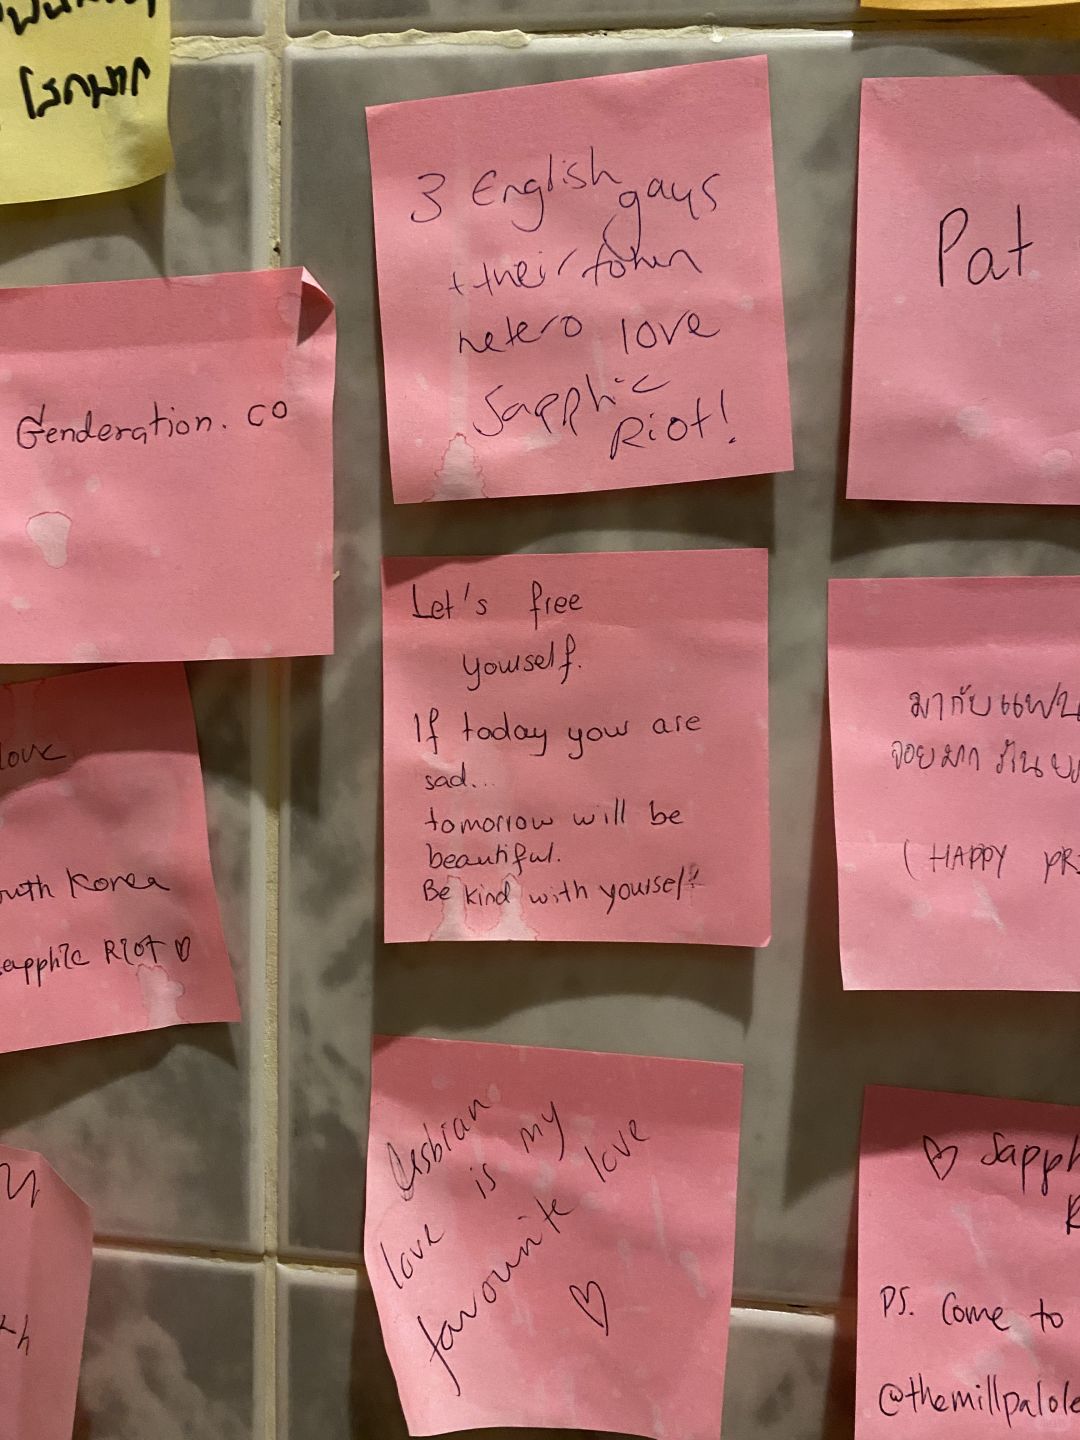 โรคหาก
3 English gays
+ their token
hetero love
Sapphic
Riot!
Pat
Genderation.co
Let's free
yourself.
If today your are
sad...
tomorrow will be
beautiful.
Be kind with yourself
love
South Korea
sapphic Riot ♡
มากับแฟน
จอยมาก
(HAPPY PRI
Lesbian
love is my
favourite love
♡
♡ Sapph
R
PS. Come to
@themillpalole